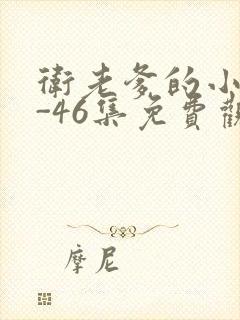 衛老爹的小
-46集免費觀
摩尼